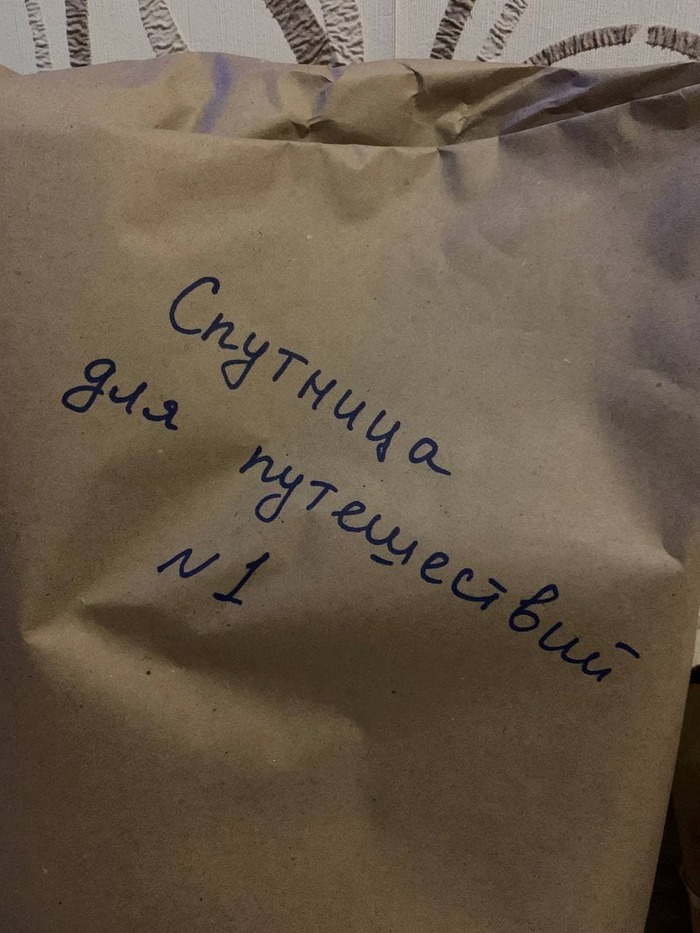 Спутница
для путешествий
N1